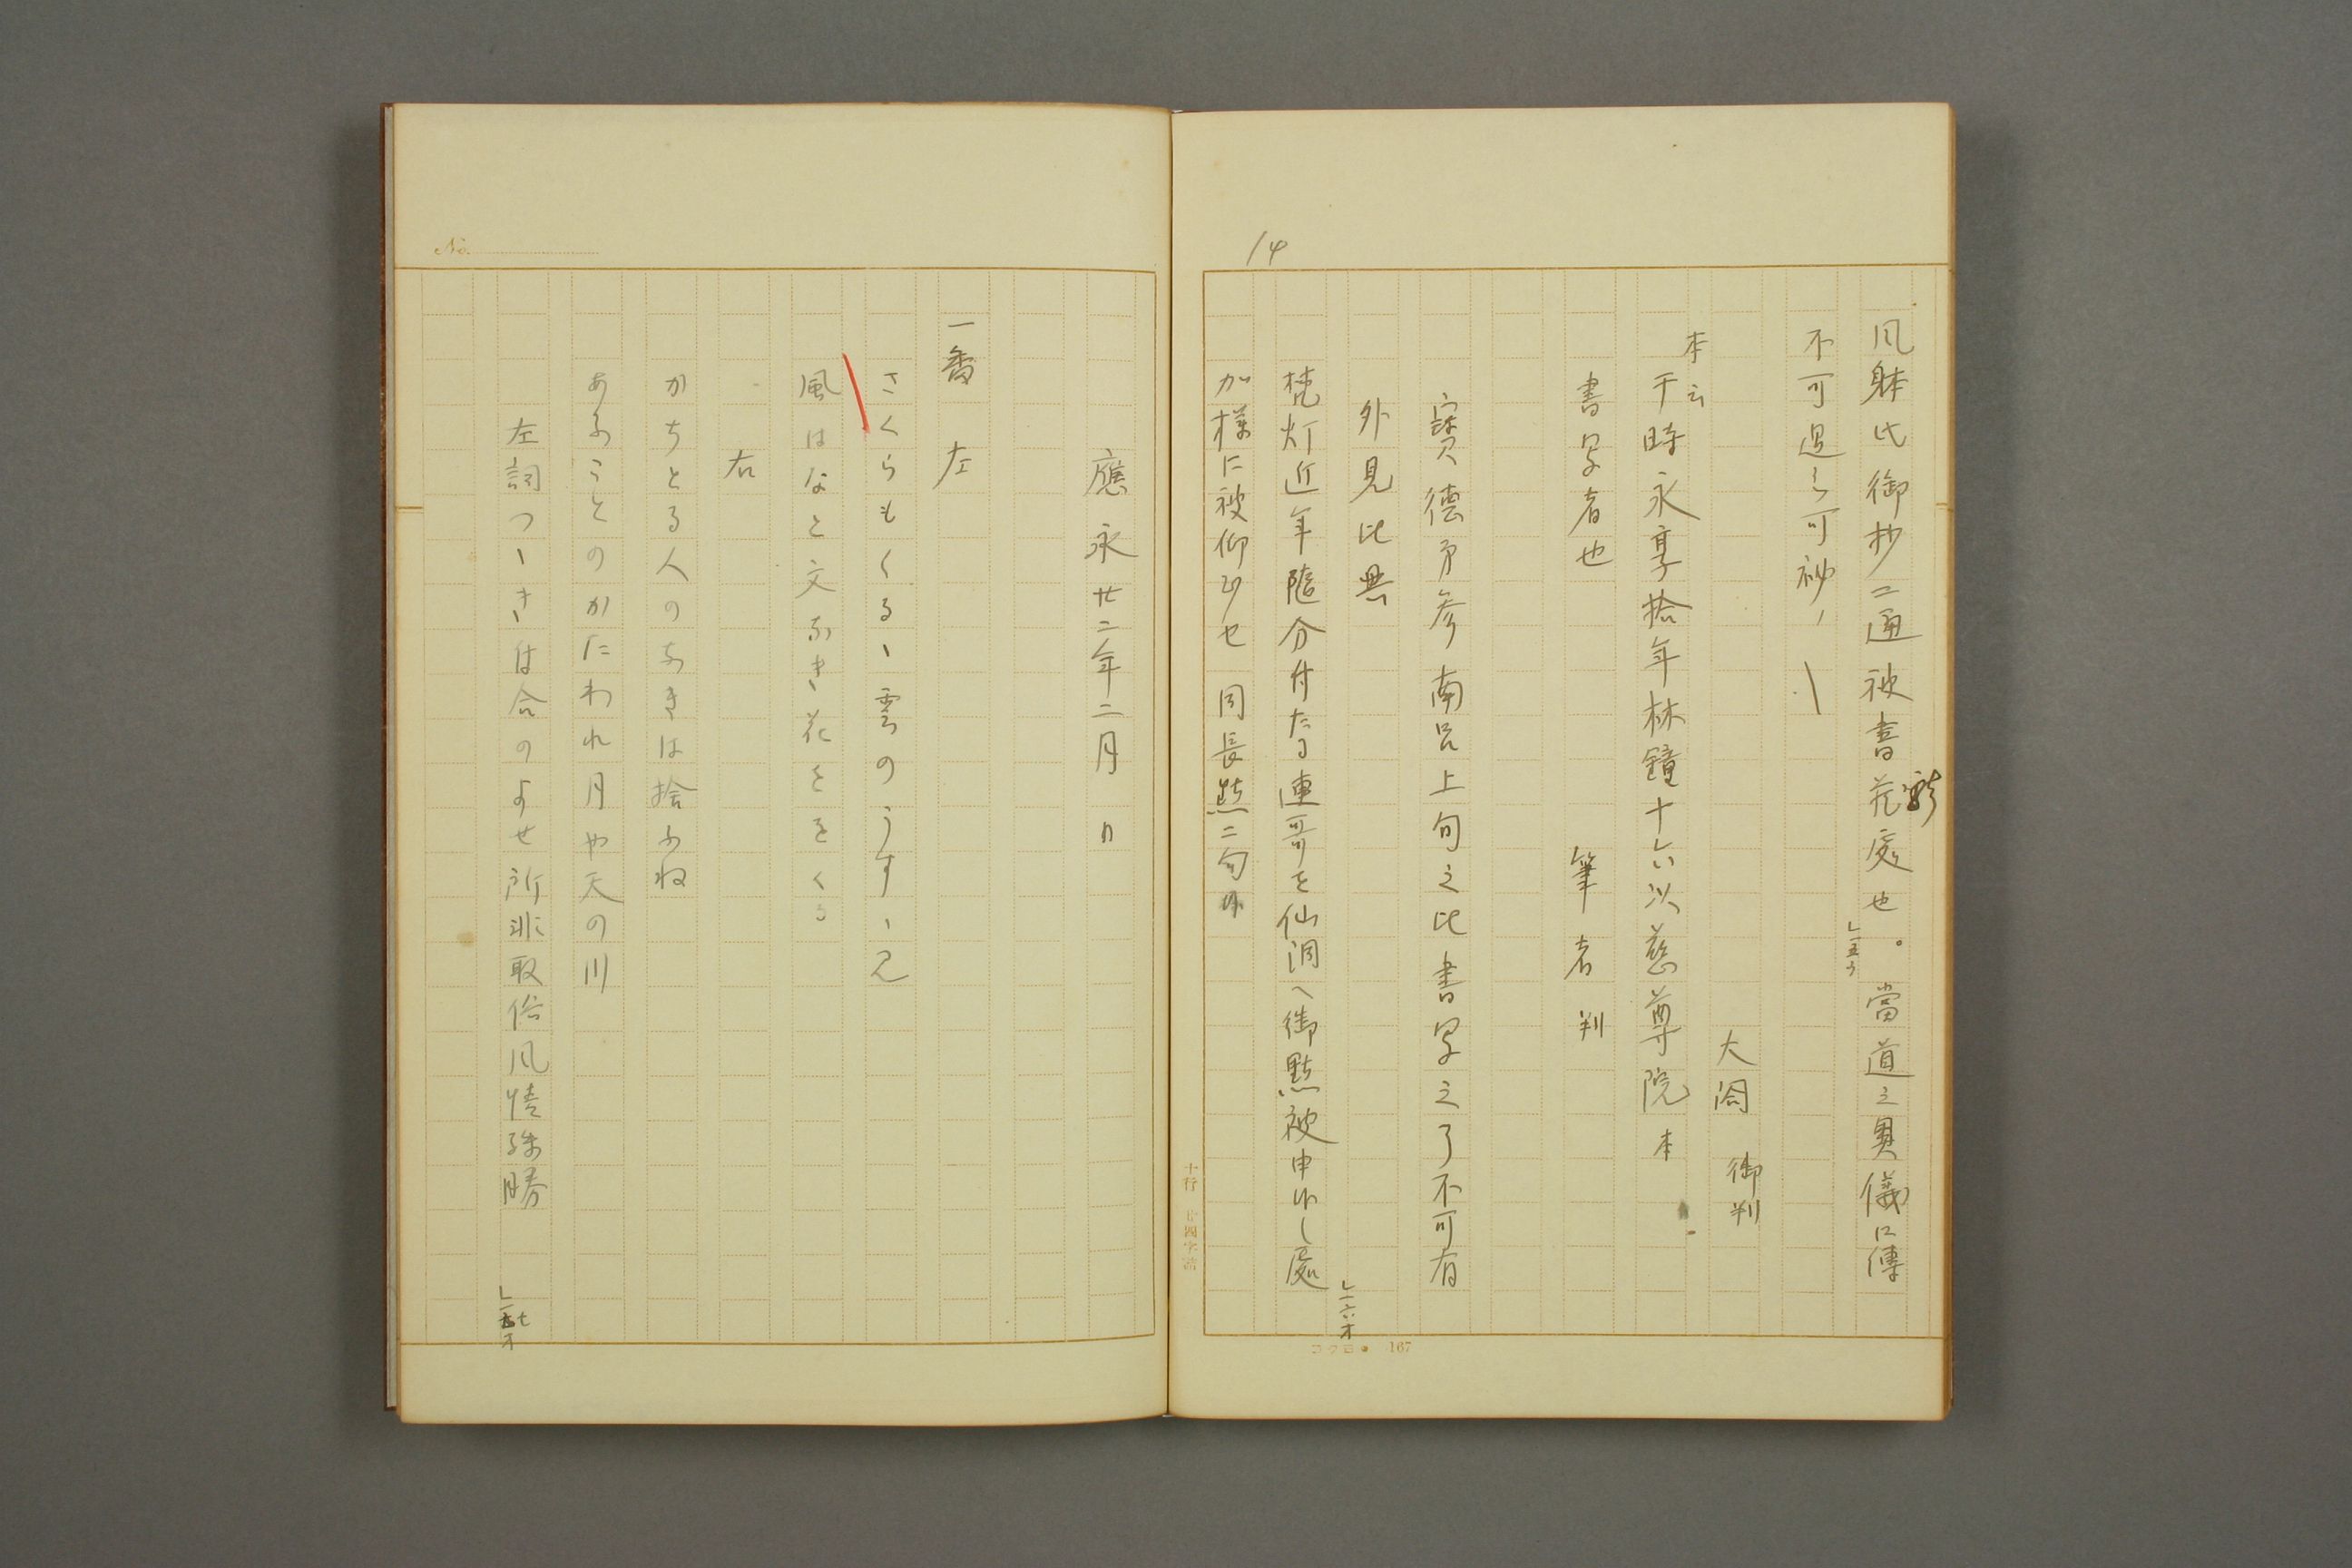 14
風躰比御抄二通被書花處也。當道之奥儀口傳
不可過之可秘〱
大閤 御判
本云
于時永享拾年林鐘十六以慈尊院本
書写者也
筆者判
寶德第参南呂上旬之比書写之了不可有
外見比興
梵灯近年隨分付たる連哥を仙洞へ御點被申候し處
加様に被仰出也 同長點二句
十行 廿四字詰
コクヨ 167
No.
應永廿二年二月 日
一番 左
さくらもくるゝ雲のうすゝみ
風はなと文なき花ををくる
右
かちとる人のなきは捨ふね
あふことのかたわれ月や天の川
左詞つゝきは合のよせ所非取俗風情殊勝